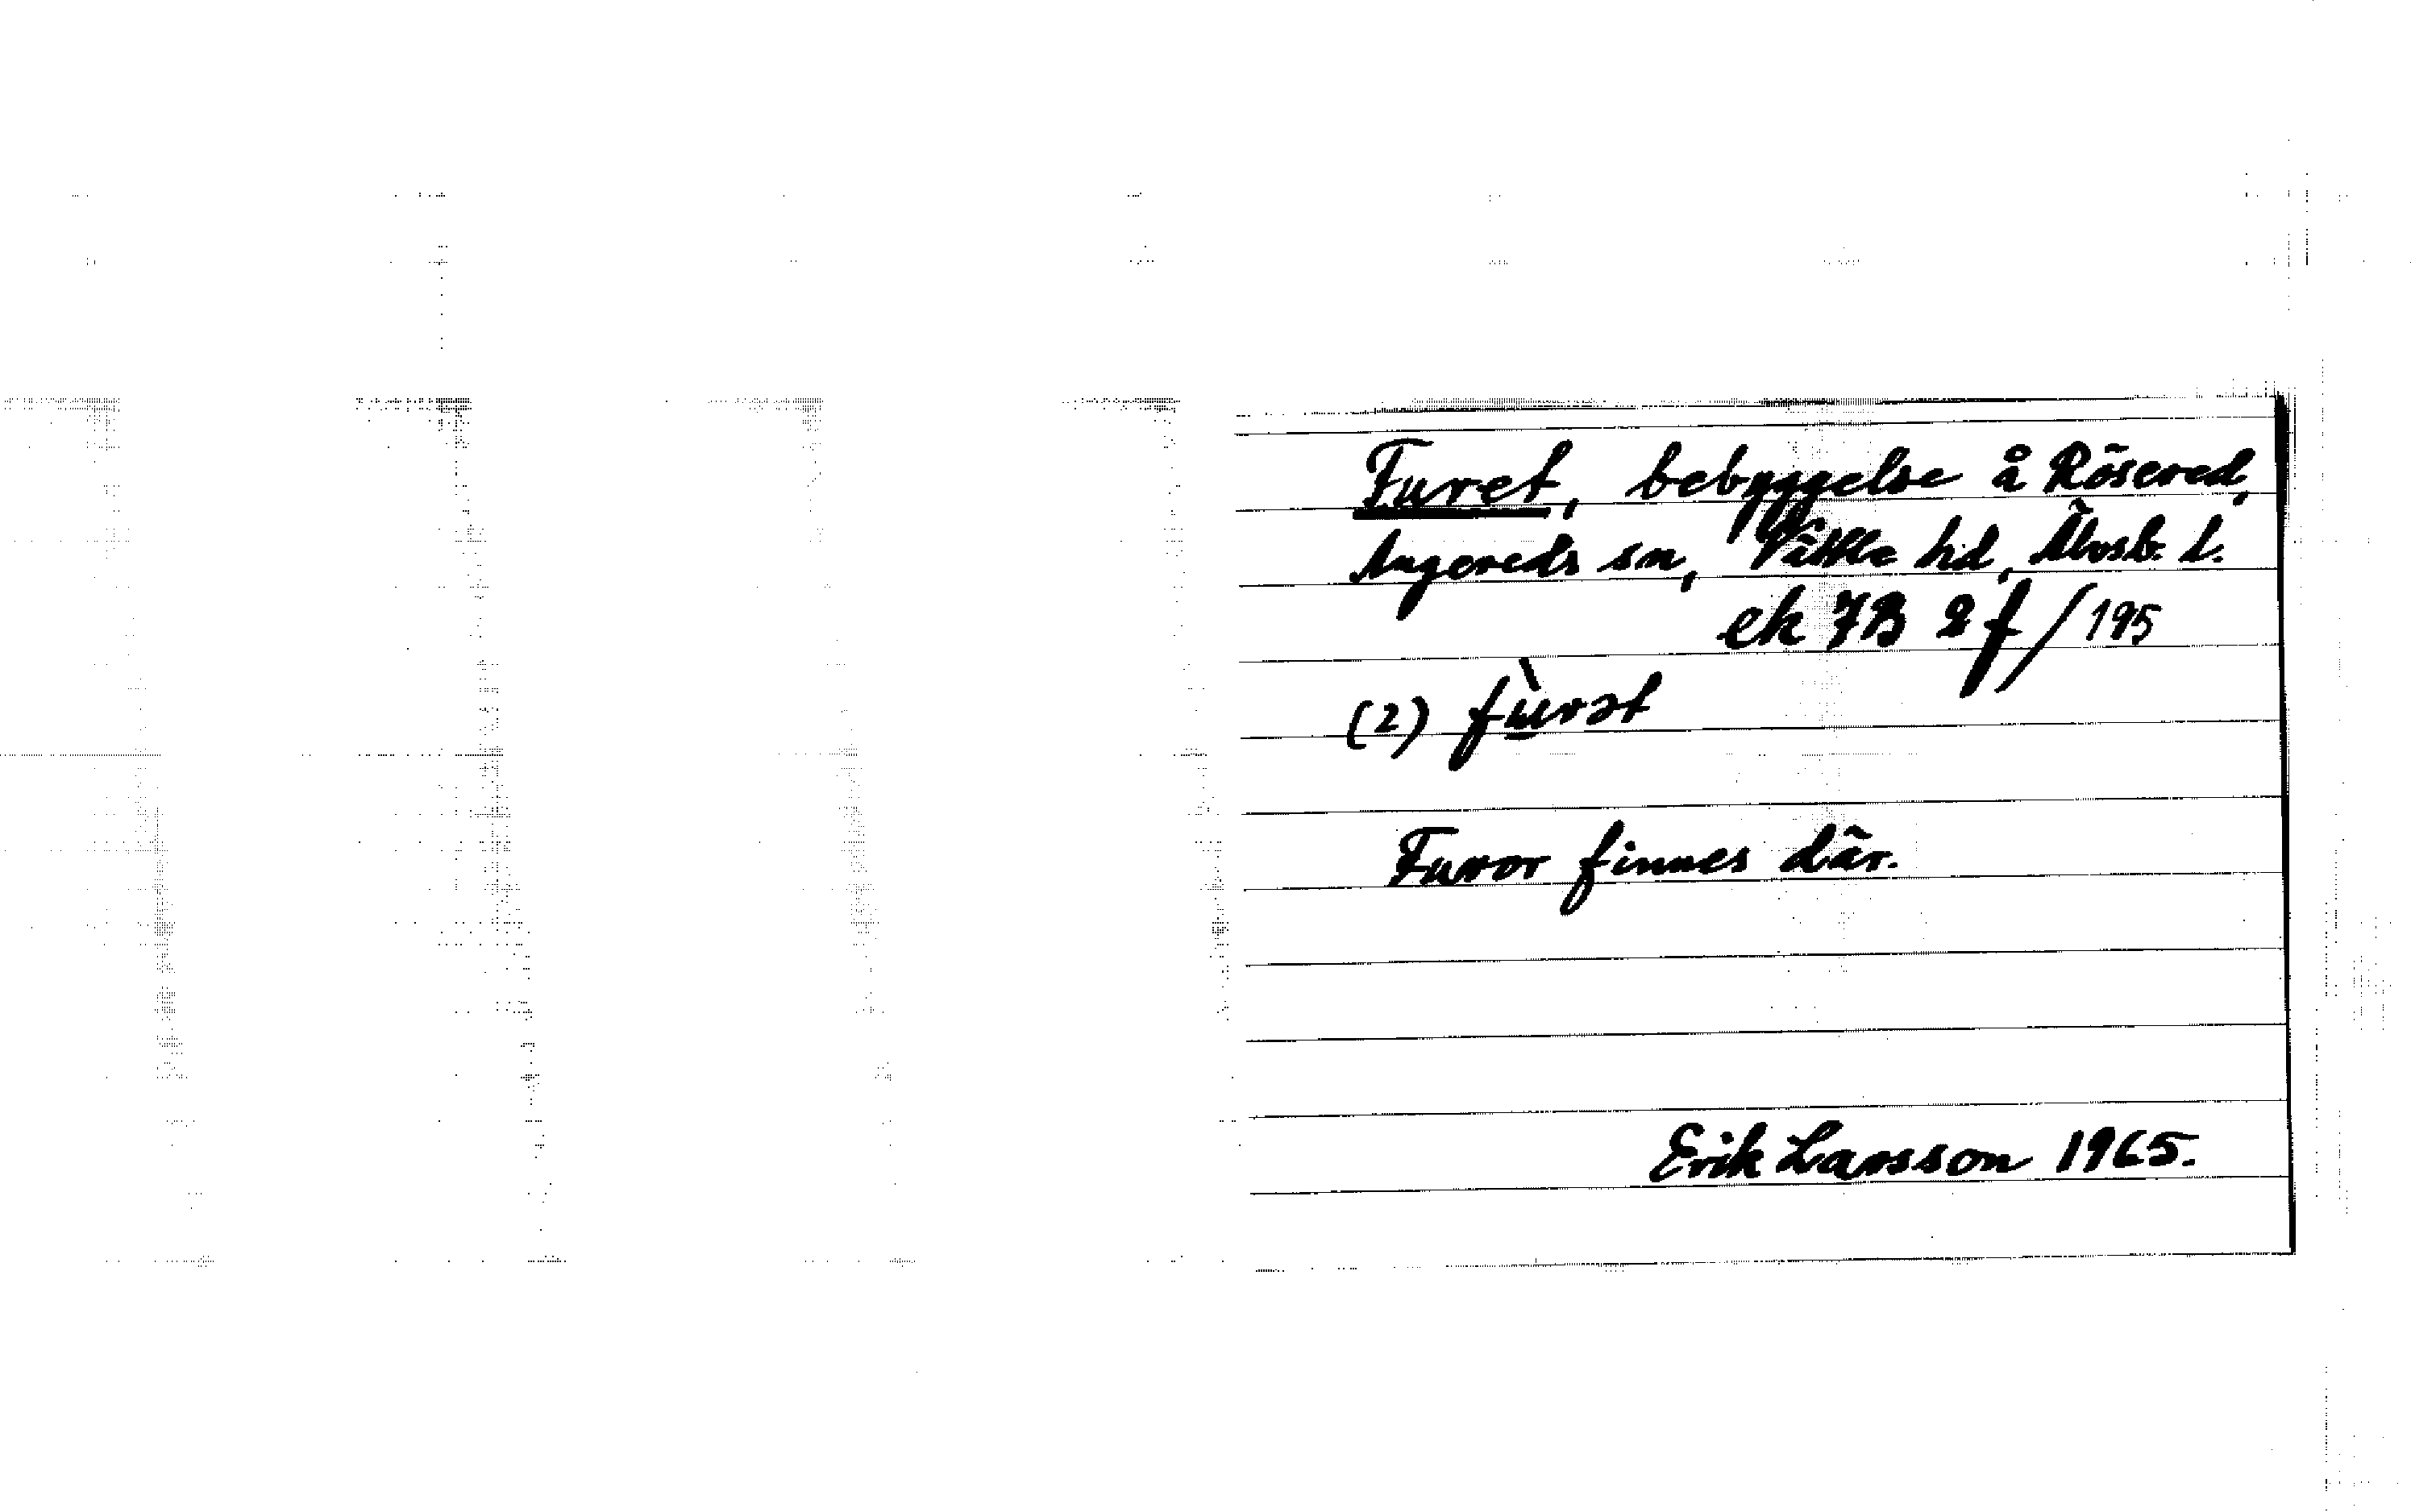 Furet, bebyggelse å Rösered,
Angereds sn, Vättle hd, Älvsb. l.
ek 7B 2f/195
(2) fùrət
Furor finnes där.
Erik Larsson 1965.